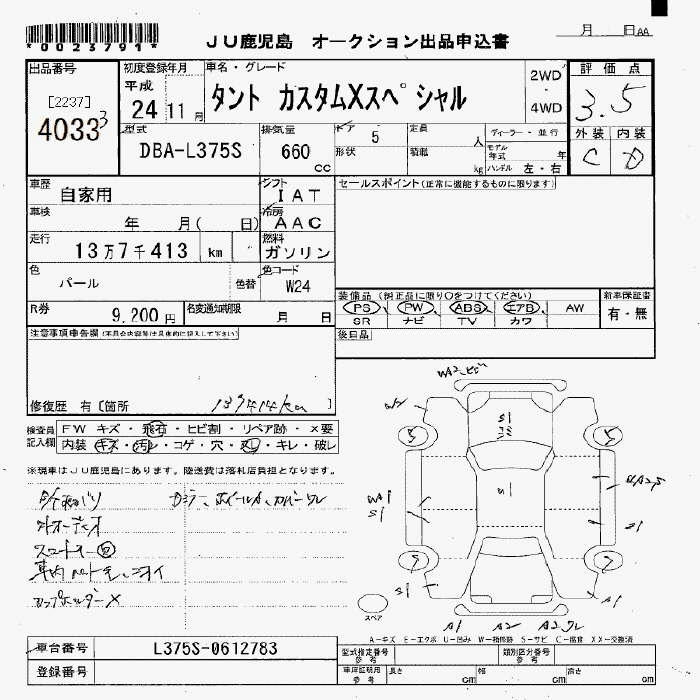 *0023791*
JU鹿児島 オークション出品申込書
月 日AA
出品番号
[2237]
4033 3
初度登録年月
平成
24 11 月
車名・グレード
タント カスタムXスペシャル
2WD
・
4WD
評価点
3.5
外装 内装
C D
型式
DBA-L375S
排気量
660
cc
ドア 5
形状
定員 人
積載 kg
ディーラー・並行
モデル年式 年
ハンドル 左・右
車歴
自家用
シフト
IAT
セールスポイント(正常に機能するものに限ります)
車検
年 月( 日)
冷房
AAC
走行
13万7千413 km
燃料
ガソリン
色
パール
色替
色コード
W24
装備品(純正品に限り○をつけてください)
PS PW ABS エアB AW
SR ナビ TV カワ
新車保証書
有・無
R券
9,200 円
名変通知期限
月 日
後日品
注意事項申告欄(不具合内容等は具体的に記入して下さい)
修復歴 有〔箇所 〕
137414km
検査員記入欄
FW キズ・飛石・ヒビ割・リペア跡・×要
内装 キズ・汚レ・コゲ・穴・凹・キレ・破レ
※現車はJU鹿児島にあります。陸送費は落札店負担となります。
カップホルダー×
WA2
S1
S1
A1 A2
スペア
A-キズ E-エクボ U-凹み W-補修跡 S-サビ C-腐食 XX-交換済
車台番号
L375S-0612783
登録番号
型式指定番号
参考
類別区分番号
参考
車庫証明用
参考
長さ cm
幅 cm
高さ cm